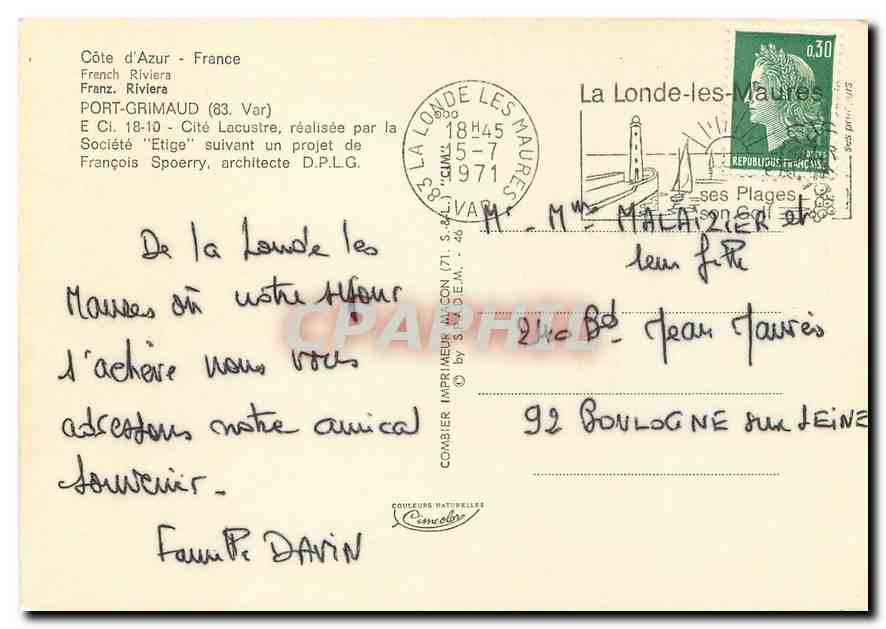 Côte d'Azur - France
French Riviera
Franz. Riviera
PORT-GRIMAUD (83. Var)
E Cl. 18-10 - Cité Lacustre, réalisée par la
Société "Etige" suivant un projet de
François Spoerry, architecte D.P.L.G.
83 LA LONDE LES MAURES
18H45
15-7
1971
VAR
La Londe-les-Maures
ses Plages
son Golf
0,30
REPUBLIQUE FRANÇAISE
De la Londe les
Maures où notre séjour
s'achève nous vous
adressons notre amical
souvenir.
Famille DAVIN
COMBIER IMPRIMEUR MACON (71. S.-&-L.) "CIM"
© by S.P.A.D.E.M. - 46
COULEURS NATURELLES
Cimcolor
Mr - Mme MALAIZIER et
leur fille
240 Bd Jean Jaurès
92 BOULOGNE sur SEINE
CPAPHIL